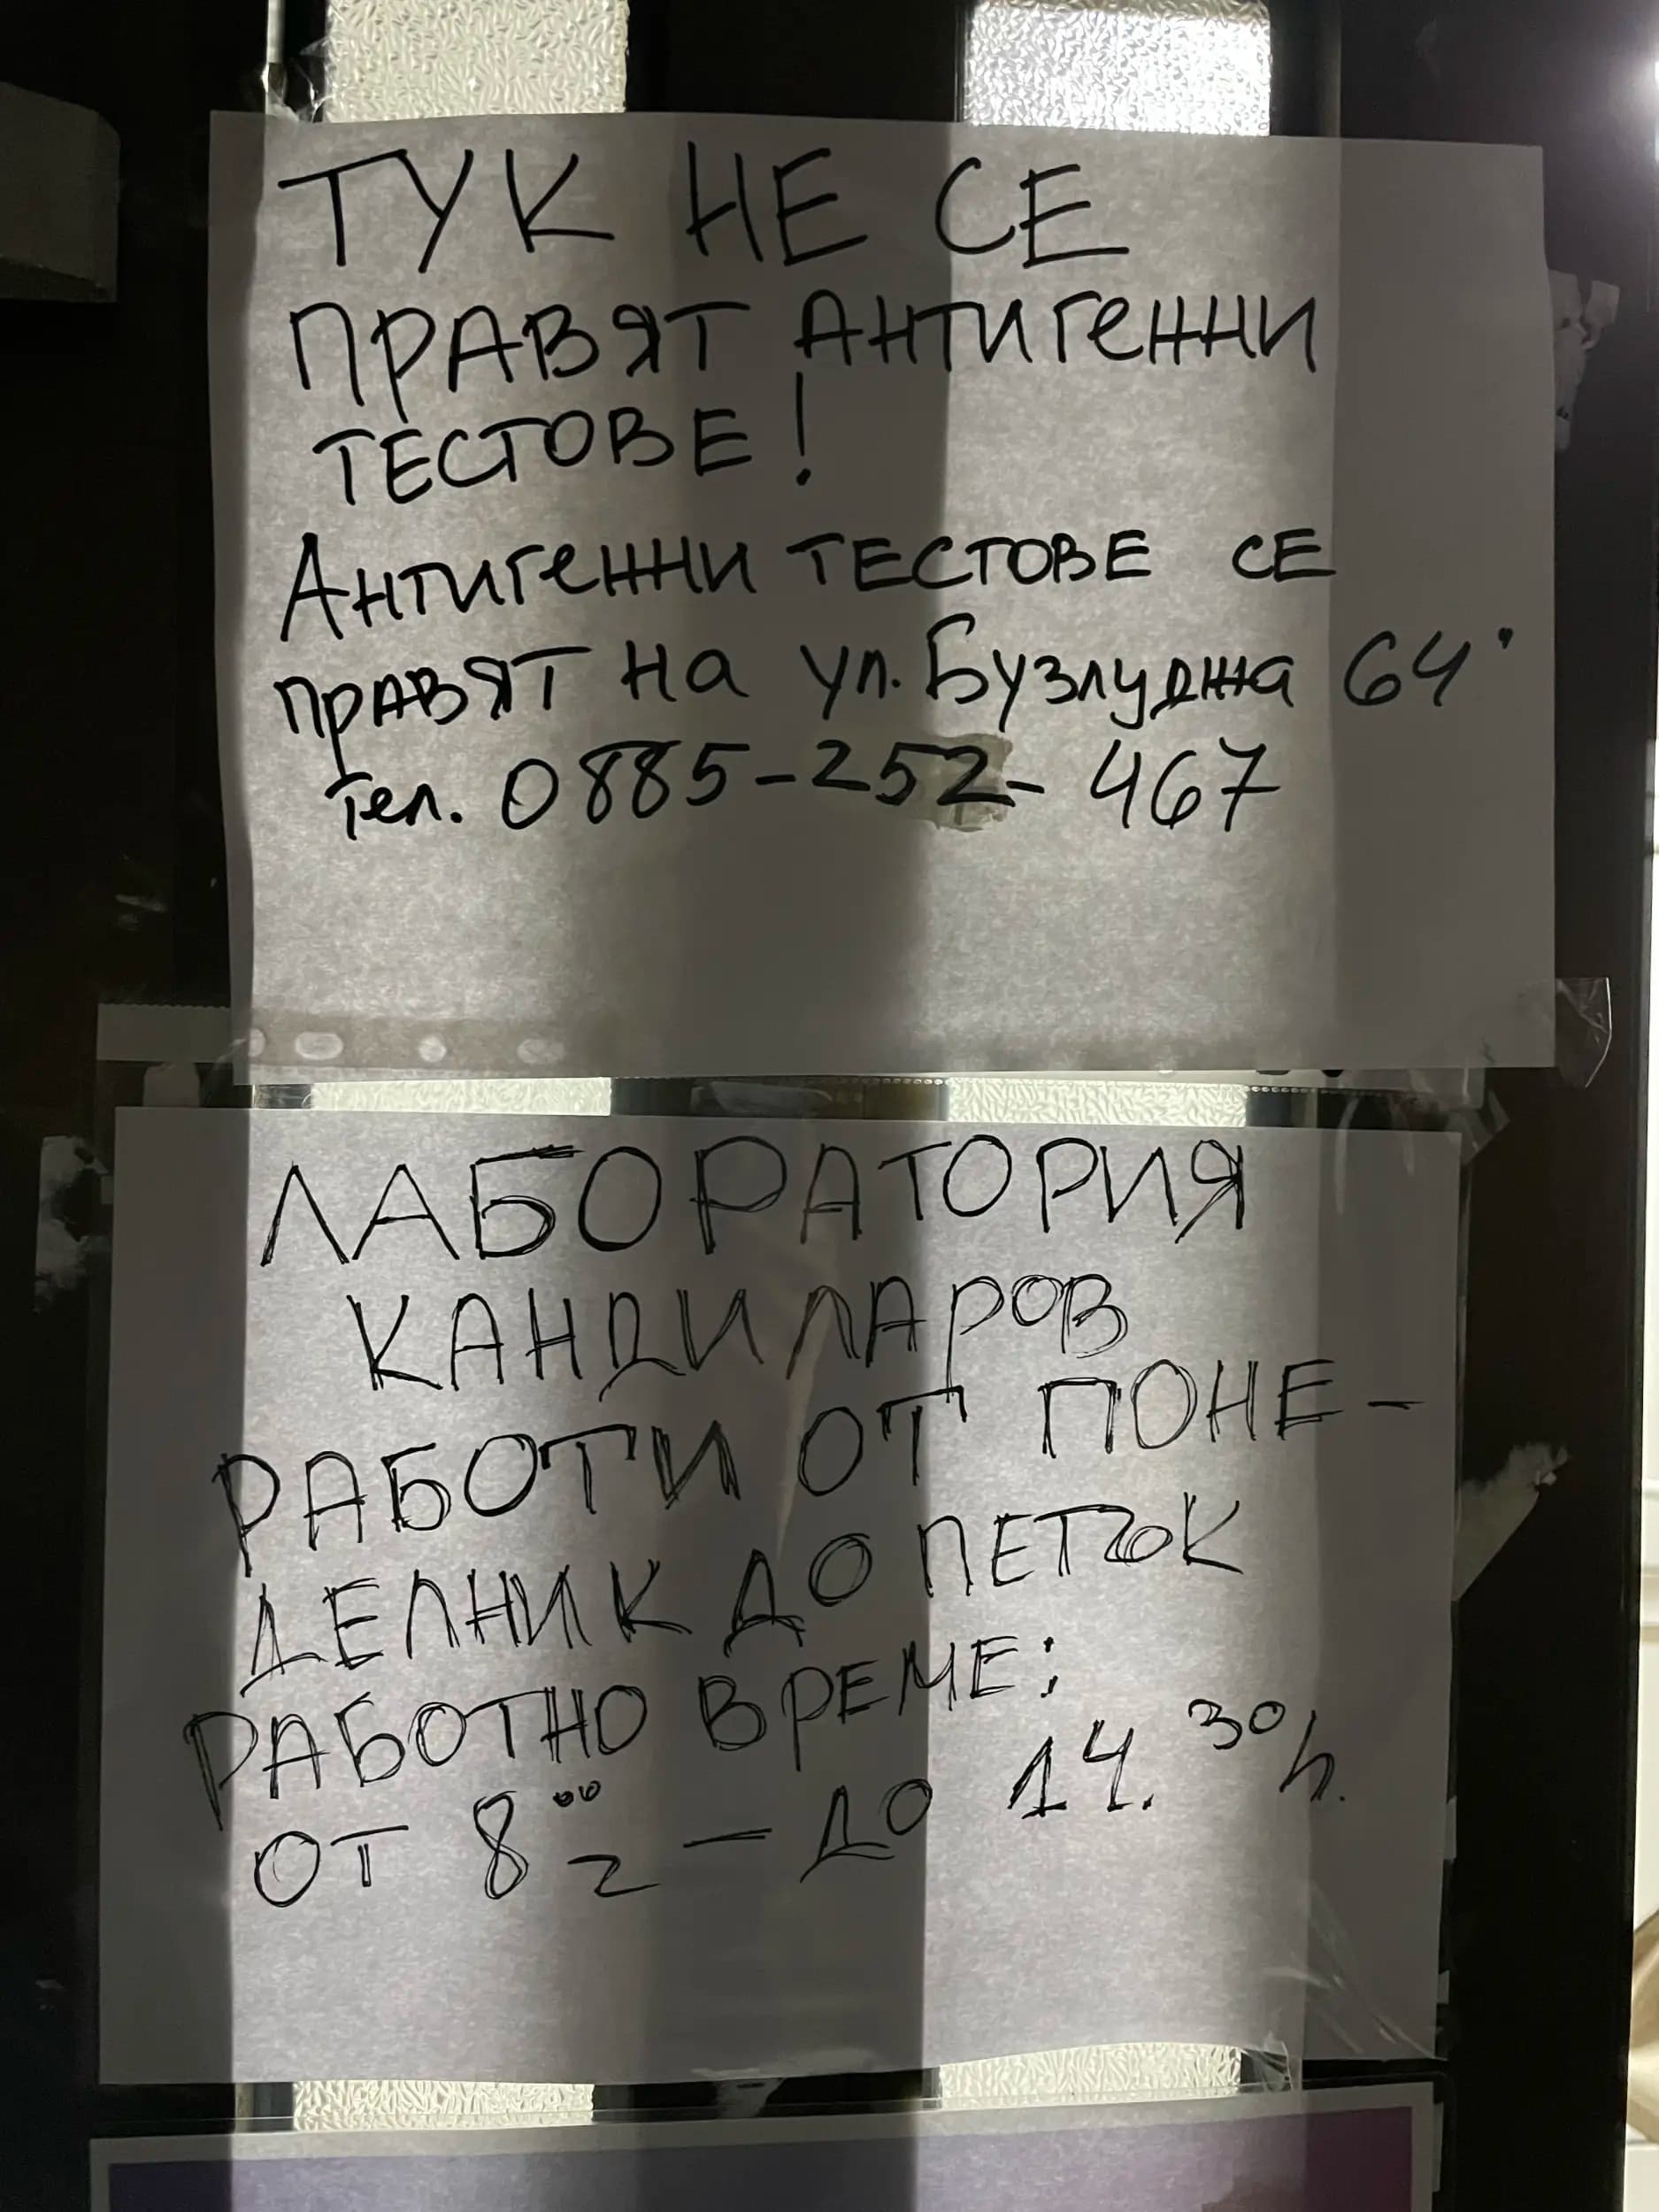 ТУК НЕ СЕ
ПРАВЯТ АНТИГЕННИ
ТЕСТОВЕ!
АНТИГЕННИ ТЕСТОВЕ СЕ
ПРАВЯТ НА ул. Бузлуджа 64
Тел. 0885-252-467
ЛАБОРАТОРИЯ
КАНДИЛАРОВ
РАБОТИ ОТ ПОНЕ-
ДЕЛНИК ДО ПЕТЪК
РАБОТНО ВРЕМЕ:
ОТ 8⁰⁰ч – ДО 14.³⁰h.